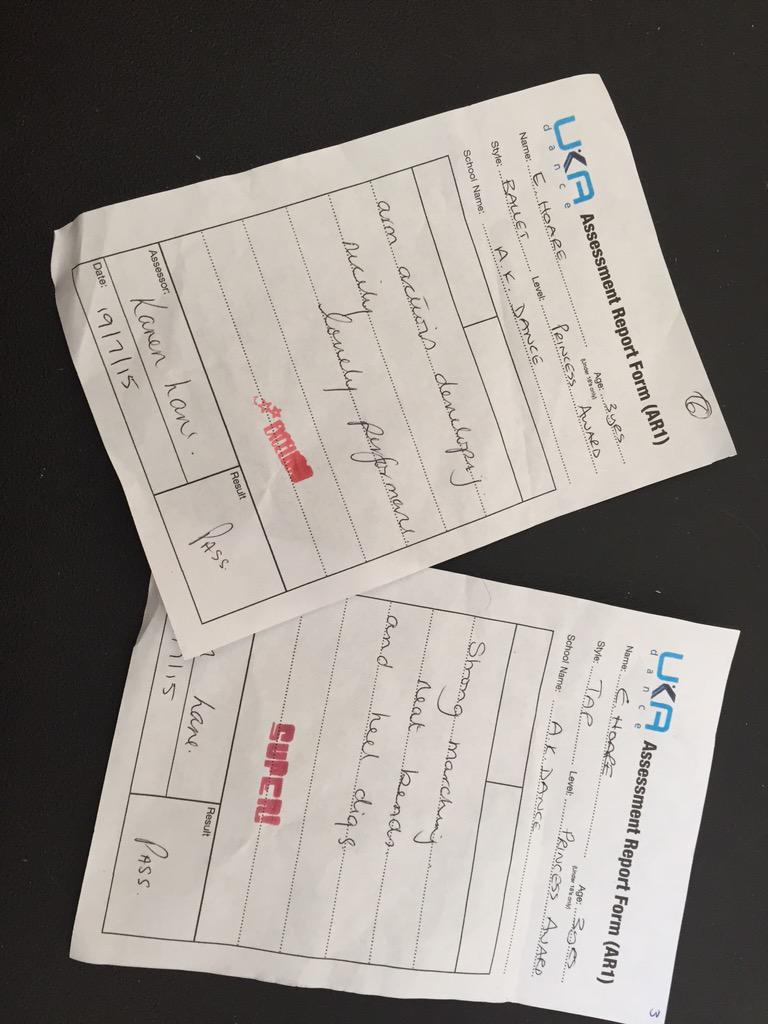 6
UKA
dance
Assessment Report Form (AR1)
Name: E HOARE Age: 3yrs
(Under 18's only)
Style: BALLET Level: PRINCESS AWARD
School Name: A.K. DANCE
arm actions developing
nicely
lovely performance
Assessor: Karen Lane.
Date: 19/7/15
Result
PASS
3
UKA
dance
Assessment Report Form (AR1)
Name: E HOARE Age: 3yrs
(Under 18's only)
Style: TAP Level: PRINCESS AWARD
School Name: A.K DANCE
Strong marching
neat bends
and heel digs
SUPER!
Lane.
7/15
Result
PASS.